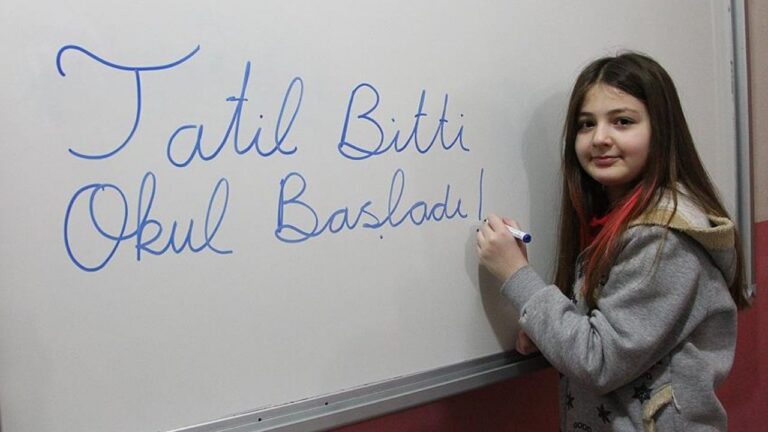 Tatil Bitti
Okul Başladı!